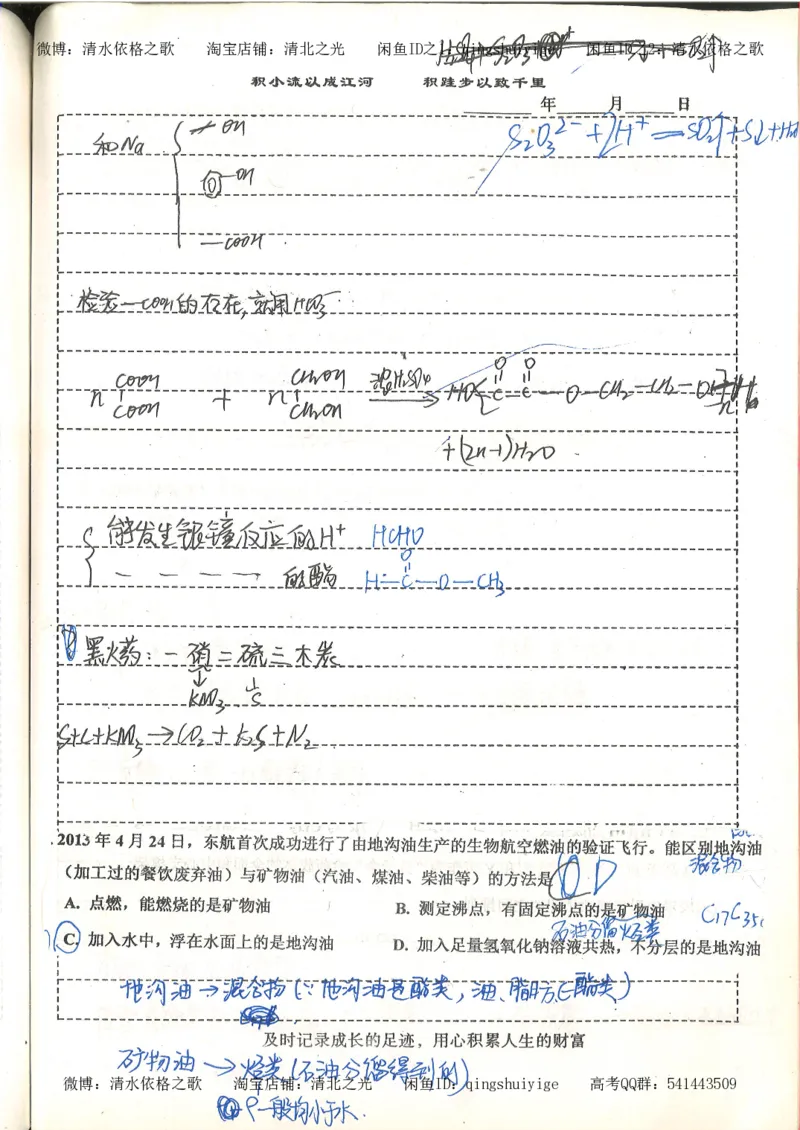 微博：清水依格之歌 淘宝店铺：清北之光 闲鱼ID之 清水依格之歌
积小流以成江河 积跬步以致千里
年 月 日
S₂O₃²⁻ + 2H⁺ = SO₂↑ + S↓ + H₂O
和Na
—OH
—OH
—COOH
检验—COOH的存在,就用HCO₃⁻
n COOH COOH + n CH₂OH CH₂OH 浓H₂SO₄ → HO [ C(=O) — C(=O) — O — CH₂ — CH₂ — O ]n H
+(2n-1)H₂O
能发生银镜反应的H⁺ HCHO
— — — — 的酯 H—C(=O)—O—CH₃
黑火药：一硝二硫三木炭
↓ ↓
KNO₃ C
S+C+KNO₃→CO₂+K₂S+N₂
2013年4月24日，东航首次成功进行了由地沟油生产的生物航空燃油的验证飞行。能区别地沟油
混合物
（加工过的餐饮废弃油）与矿物油（汽油、煤油、柴油等）的方法是 D
A. 点燃，能燃烧的是矿物油 B. 测定沸点，有固定沸点的是矿物油
石油分馏烃类
C. 加入水中，浮在水面上的是地沟油 D. 加入足量氢氧化钠溶液共热，不分层的是地沟油
地沟油→混合物(∵地沟油是酯类，油、脂肪∈酯类)
及时记录成长的足迹，用心积累人生的财富
矿物油→烃类(石油分馏得到的)
微博：清水依格之歌 淘宝店铺：清北之光 闲鱼ID：qingshuiyige 高考QQ群：541443509
ρ一般均小于水.